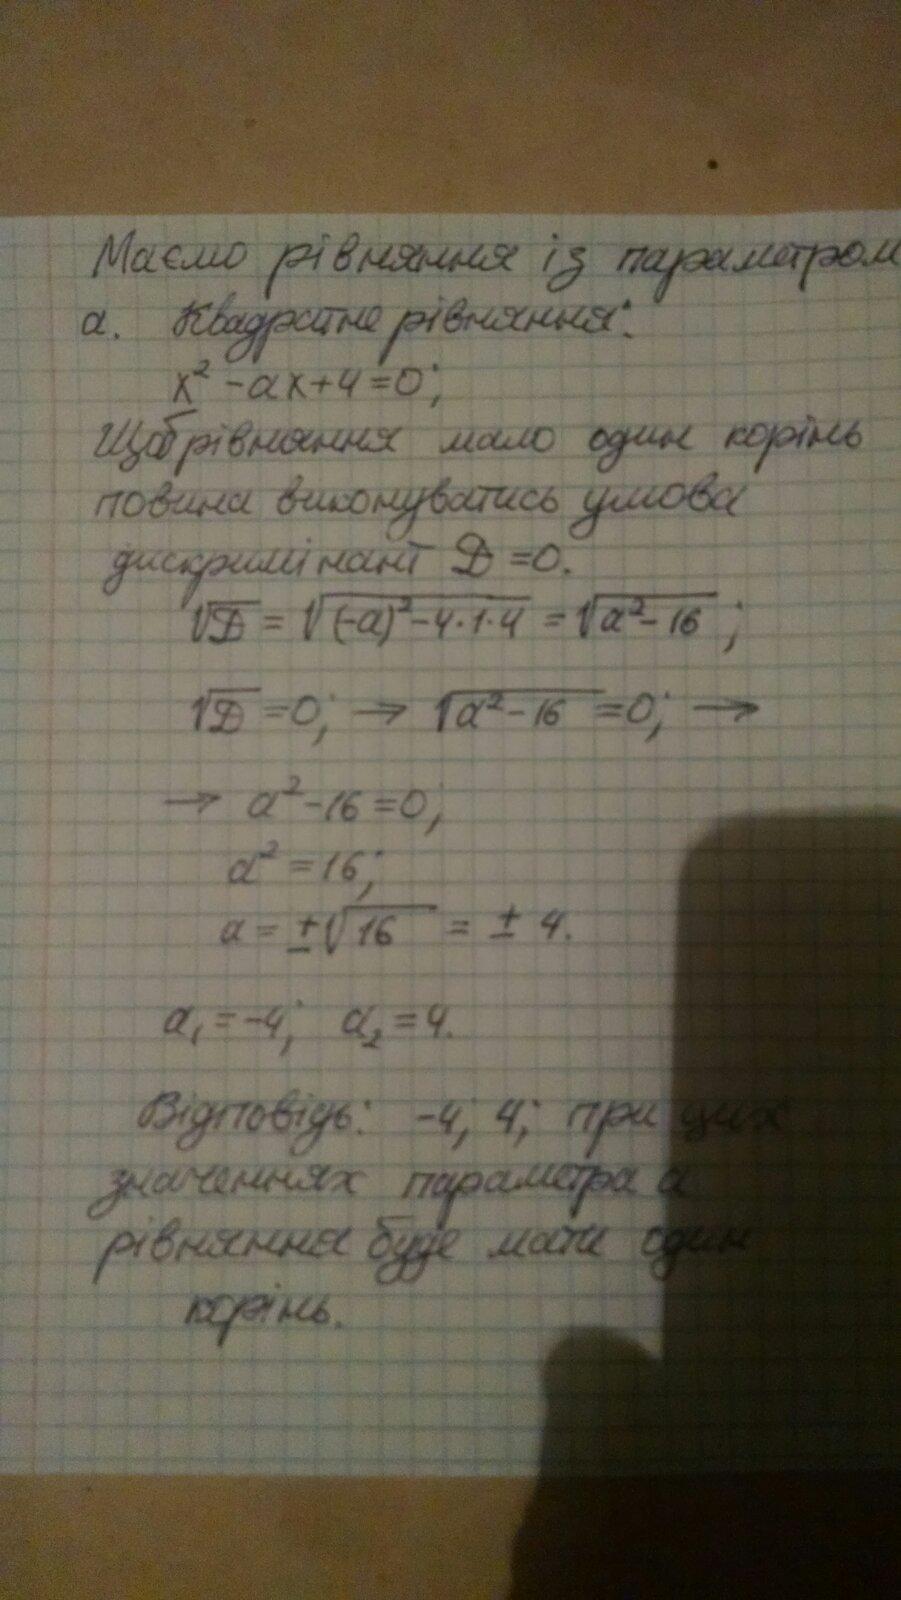 Маємо рівняння із параметром
а. Квадратне рівняння:
x² - ax + 4 = 0;
Щоб рівняння мало один корінь
повина виконуватись умова
дискримінант D = 0.
√D = √((-a)² - 4·1·4) = √(a² - 16);
√D = 0; → √(a² - 16) = 0; →
→ a² - 16 = 0;
a² = 16;
a = ±√16 = ± 4.
a₁ = -4; a₂ = 4.
Відповідь: -4; 4; при цих
значеннях параметра а
рівняння буде мати один
корінь.